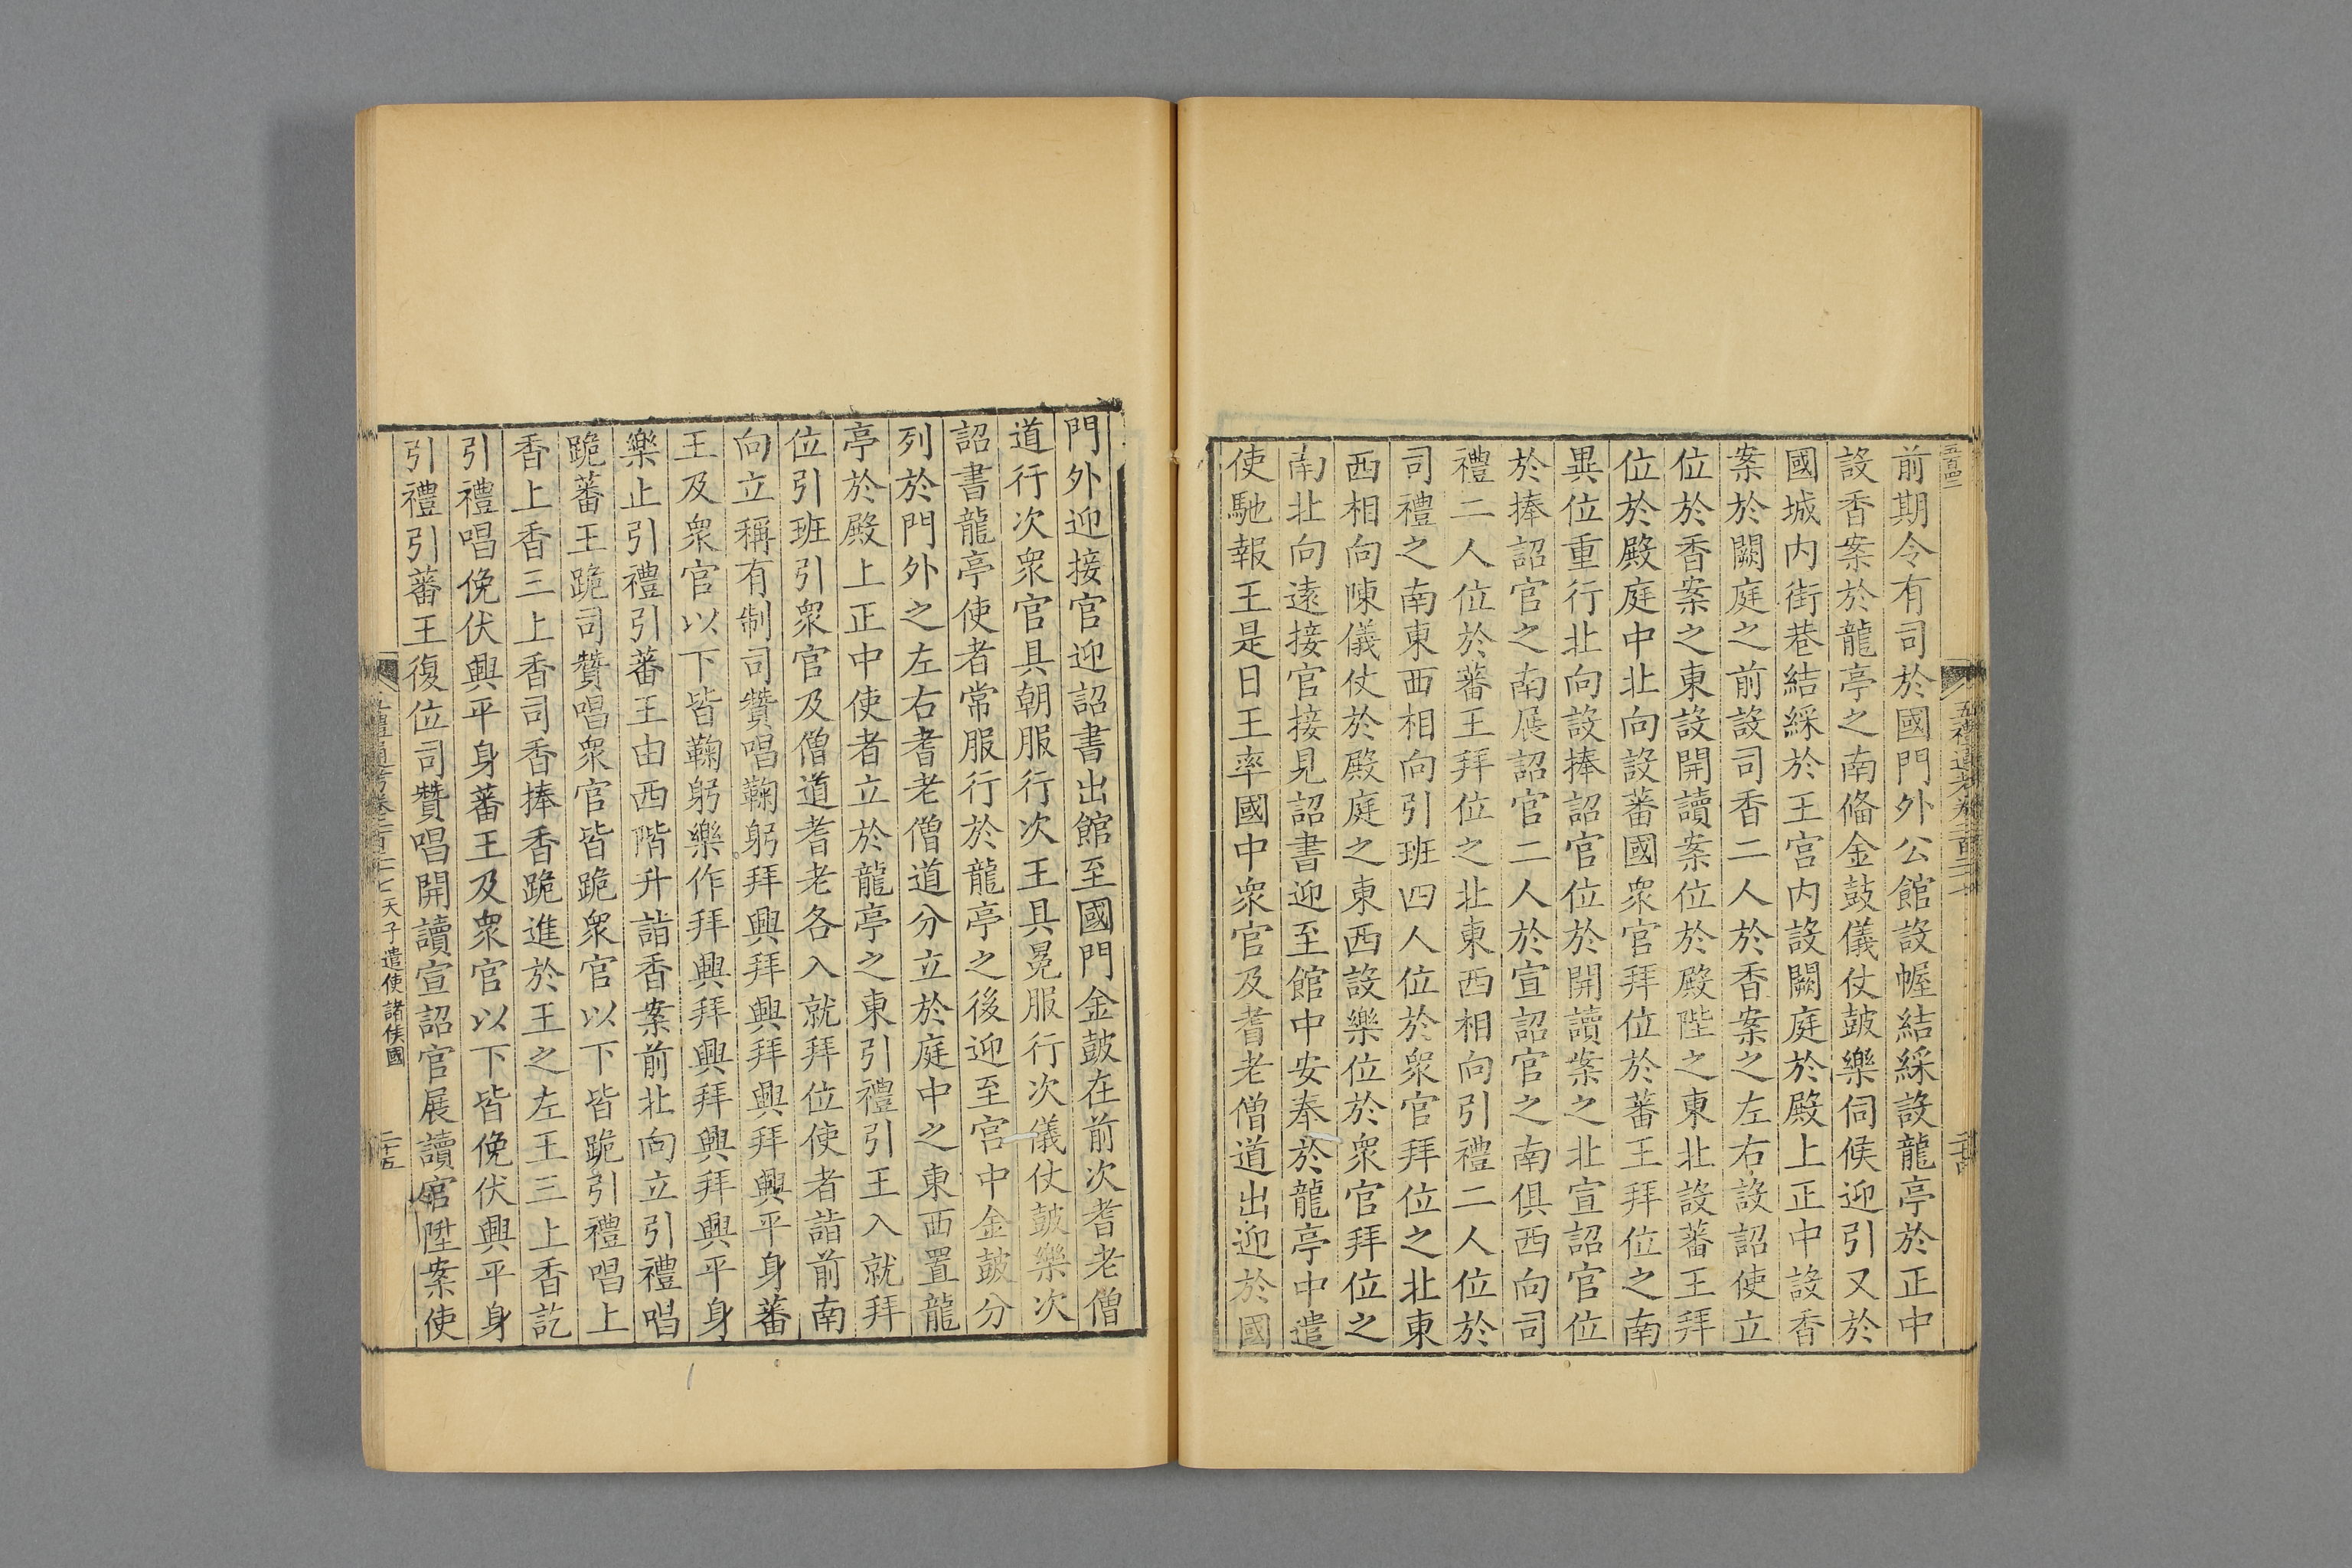 前期令有司於國門外公館設幄結綵設龍亭於正中
設香案於龍亭之南俻金鼓儀仗鼓樂伺候迎引又於
國城内街巷結綵於王宫内設闕庭於殿上正中設香
案於闕庭之前設司香二人於香案之左右設詔使立
位於香案之東設開讀案位於殿陛之東北設蕃王拜
位於殿庭中北向設蕃國衆官拜位於蕃王拜位之南
異位重行北向設捧詔官位於開讀案之北宣詔官位
於捧詔官之南展詔官二人於宣詔官之南俱西向司
禮二人位於蕃王拜位之北東西相向引禮二人位於
司禮之南東西相向引班四人位於衆官拜位之北東
西相向陳儀仗於殿庭之東西設樂位於衆官拜位之
南北向遠接官接見詔書迎至館中安奉於龍亭中遣
使馳報王是日王率國中衆官及耆老僧道出迎於國
門外迎接官迎詔書出館至國門金鼓在前次耆老僧
道行次衆官具朝服行次王具冕服行次儀仗鼓樂次
詔書龍亭使者常服行於龍亭之後迎至宫中金鼓分
列於門外之左右耆老僧道分立於庭中之東西置龍
亭於殿上正中使者立於龍亭之東引禮引王入就拜
位引班引衆官及僧道耆老各入就拜位使者詣前南
向立稱有制司贊唱鞠躬拜興拜興拜興拜興平身蕃
王及衆官以下皆鞠躬樂作拜興拜興拜興拜興平身
樂止引禮引蕃王由西階升詣香案前北向立引禮唱
跪蕃王跪司贊唱衆官皆跪衆官以下皆跪引禮唱上
香上香三上香司香捧香跪進於王之左王三上香訖
引禮唱俛伏興平身蕃王及衆官以下皆俛伏興平身
引禮引蕃王復位司贊唱開讀宣詔官展讀官陞案使
天子遣使諸侯國
二十五